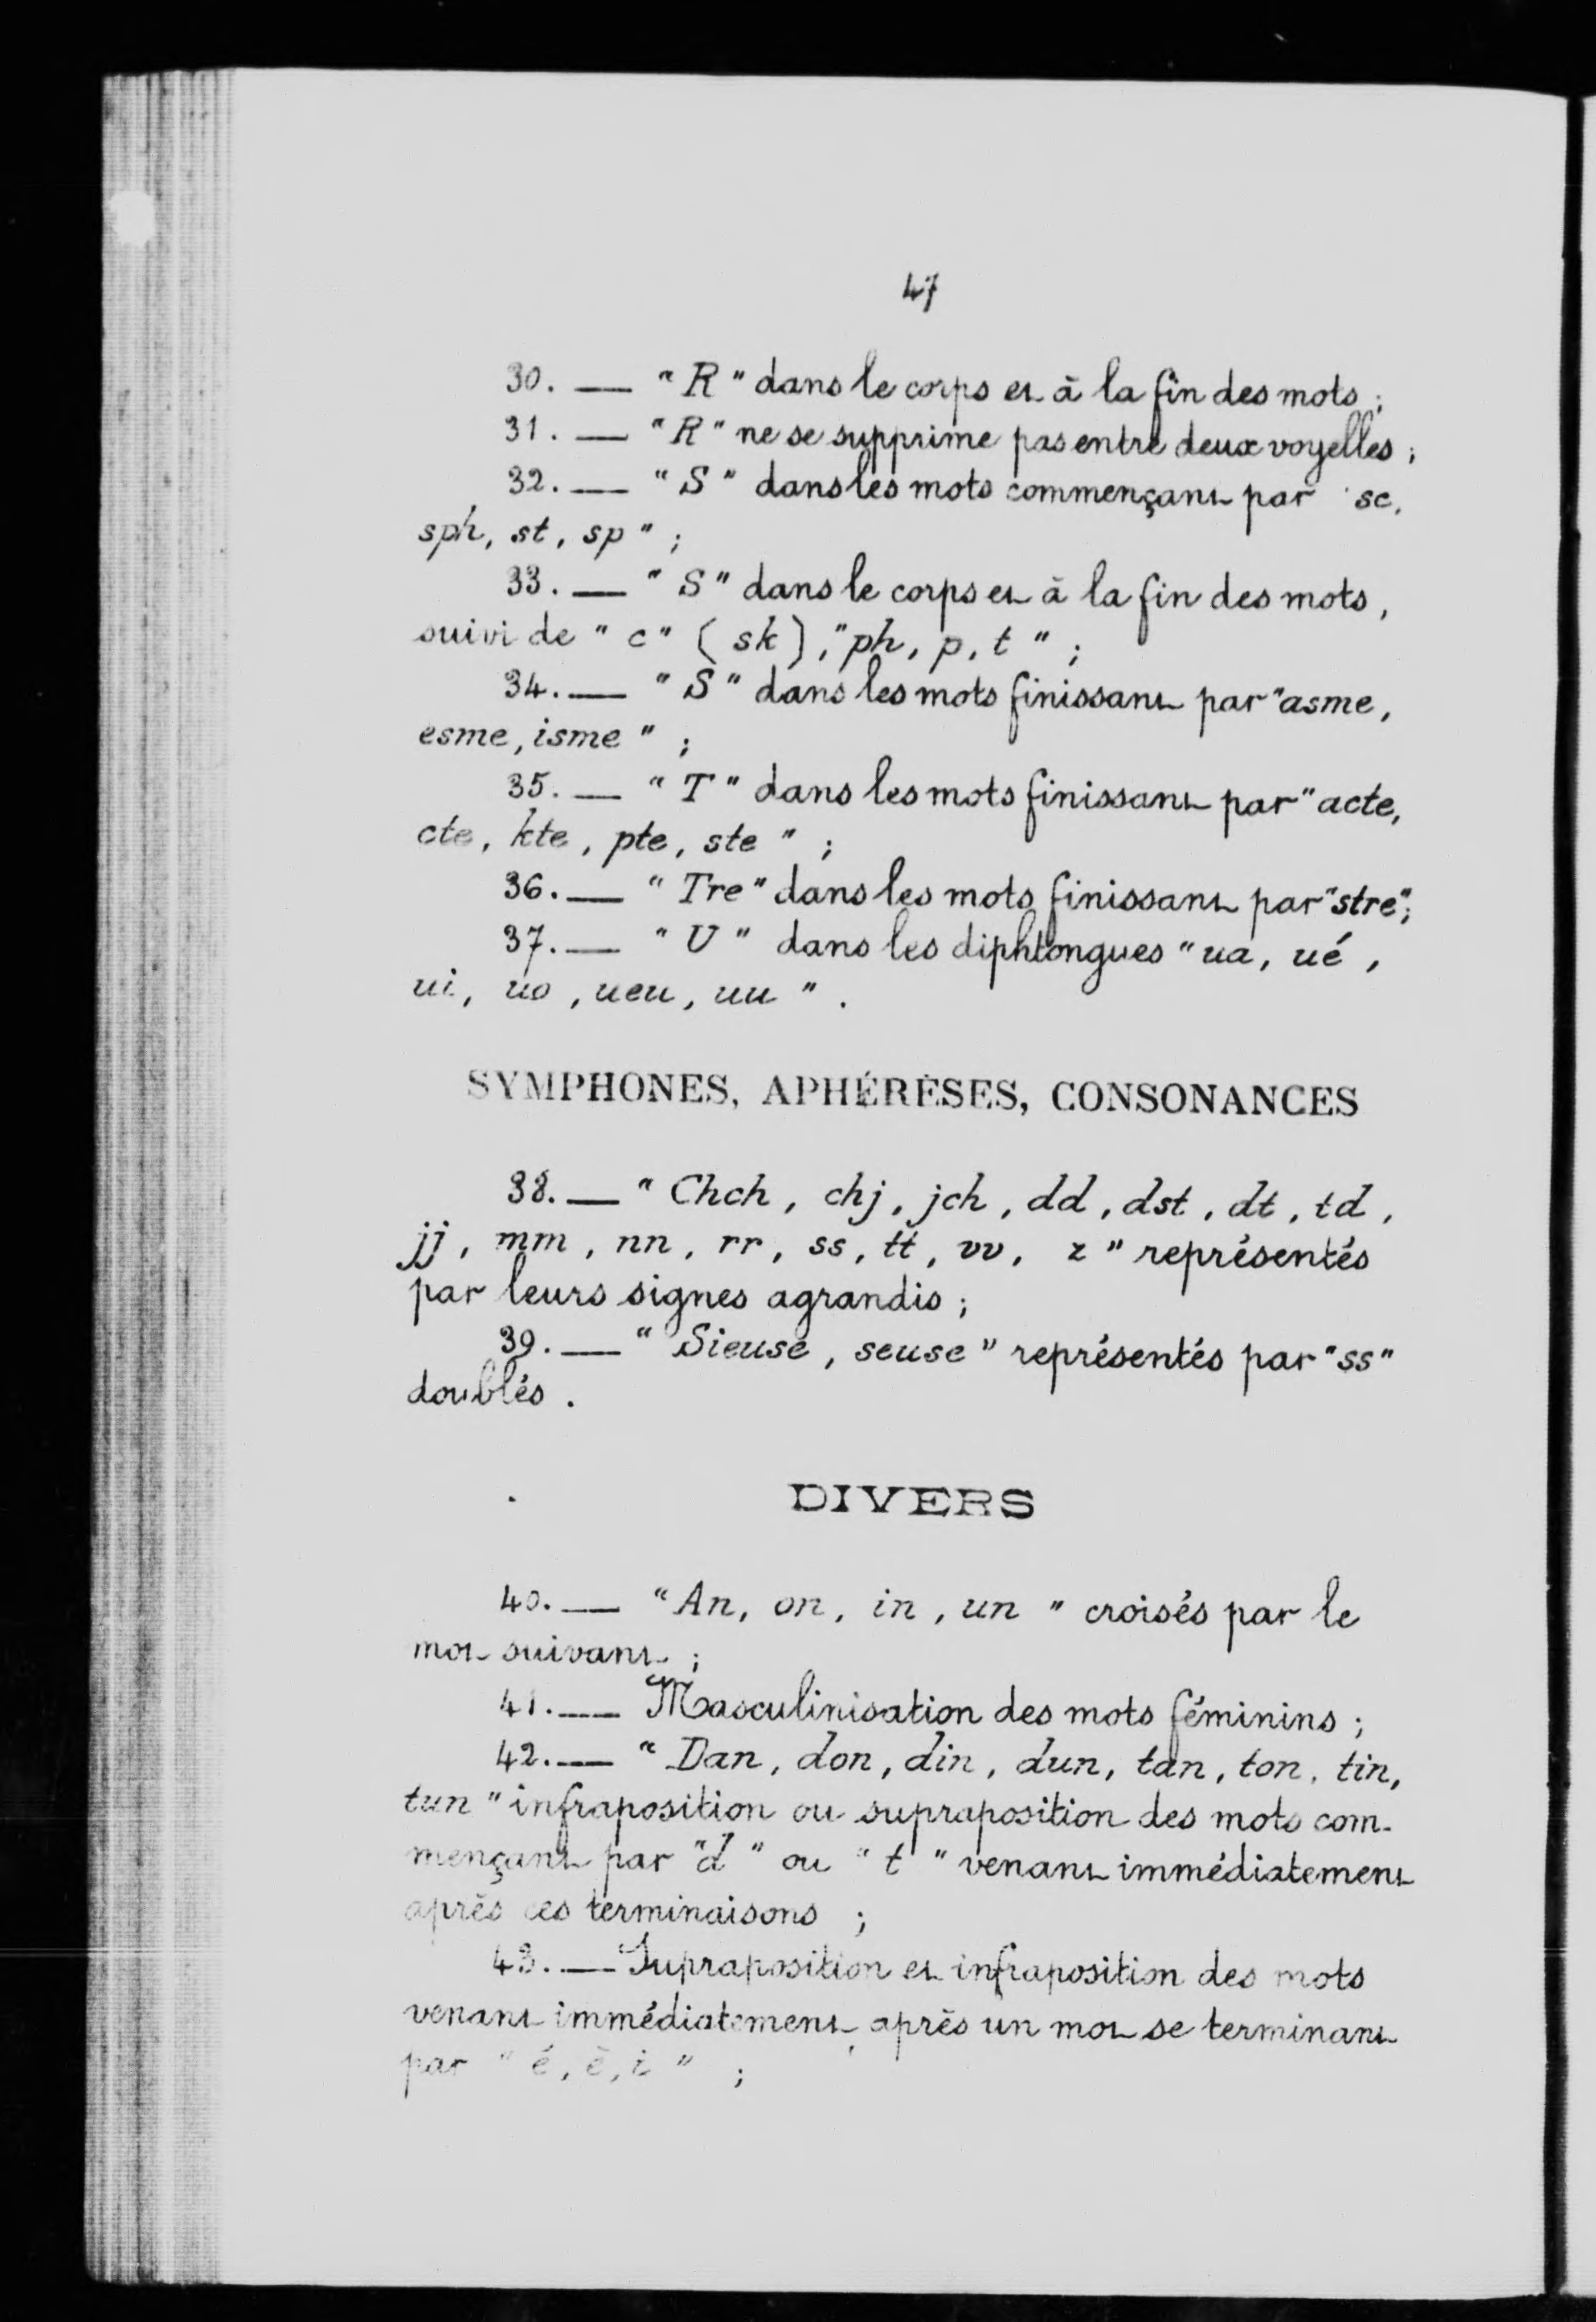 47
30. — "R" dans le corps et à la fin des mots ;
31. — "R" ne se supprime pas entre deux voyelles ;
32. — "S" dans les mots commençant par "sc,
sph, st, sp" ;
33. — "S" dans le corps et à la fin des mots,
suivi de "c" (sk), "ph, p, t" ;
34. — "S" dans les mots finissant par "asme,
esme, isme" ;
35. — "T" dans les mots finissant par "acte,
cte, kte, pte, ste" ;
36. — "Tre" dans les mots finissant par "stre";
37. — "U" dans les diphtongues "ua, ué,
ui, uo, ueu, uu".
SYMPHONES, APHÉRÈSES, CONSONANCES
38. — "Chch, chj, jch, dd, dst, dt, td,
jj, mm, nn, rr, ss, tt, vv, z" représentés
par leurs signes agrandis ;
39. — "Sieuse, seuse" représentés par "ss"
doublés.
DIVERS
40. — "An, on, in, un" croisés par le
mot suivant ;
41. — Masculinisation des mots féminins ;
42. — "Dan, don, din, dun, tan, ton, tin,
tun" infraposition ou supraposition des mots com-
mençant par "d" ou "t" venant immédiatement
après ces terminaisons ;
43. — Supraposition et infraposition des mots
venant immédiatement après un mot se terminant
par "é, è, i" ;